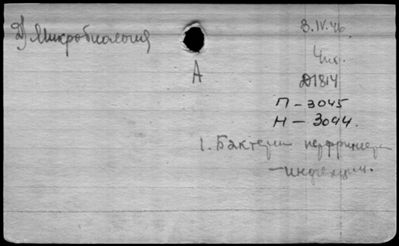 2) Микробиология
3.IV.46.
Чио.
A
Д1814
П-3045
Н-3044.
1. Бактерии перфрингенс